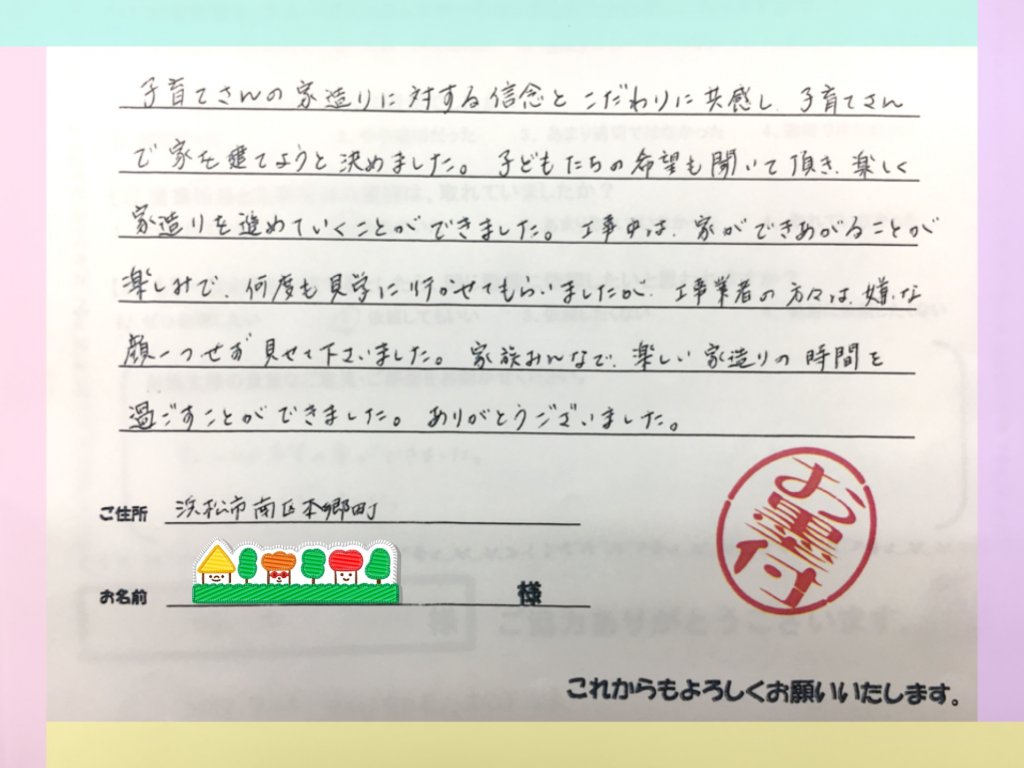 子育てさんの家造りに対する信念とこだわりに共感し、子育てさん
で家を建てようと決めました。子どもたちの希望も聞いて頂き、楽しく
家造りを進めていくことができました。工事中は、家ができあがることが
楽しみで、何度も見学に行かせてもらいましたが、工事業者の方々は、嫌な
顔一つせず見せて下さいました。家族みんなで、楽しい家造りの時間を
過ごすことができました。ありがとうございました。
ご住所 浜松市南区本郷町
お名前 様
お墨付
これからもよろしくお願いいたします。